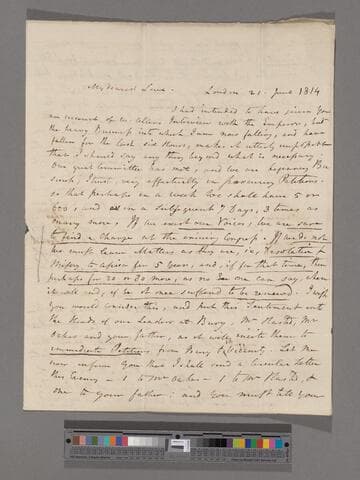 My dearest
London 21. June 1814
I had intended to have given you
an account of Interview with the Emperor, but
the heavy Business into which I am now fallen, and have
fallen for the last six Hours, makes it utterly impossible
that I should say any thing beyond what is necessary
Our great Committee has met, and we are exercising Ourselves
I trust very effectually in procuring Petitions
so that perhaps in a week we shall have 5 or
600, and in a subsequent 7 Days, 3 times as
many more; If we exert our Voices, we are sure
to find a Change at the ensuing Congress. If we do not
we must leave Matters as they are, i.e, Desolation &
Misery to Africa for 5 Years, and if for that time, then
perhaps for 20 or 30 more, as no one can say when
it will end, if be at once suffered to be renewed. I wish
you would consider this, and put this Sentiment into
the Hands of our Leaders at Bury, Mr Hasted, Mr
Oakes and your father, as it will incite them to
immediate Petitions from Bury & Vicinity. Let me
now inform you that I shall send a Circular Letter
this Evening - 1 to Mr Oakes - 1 to Mr Hasted, &
one to your father, and you must tell your